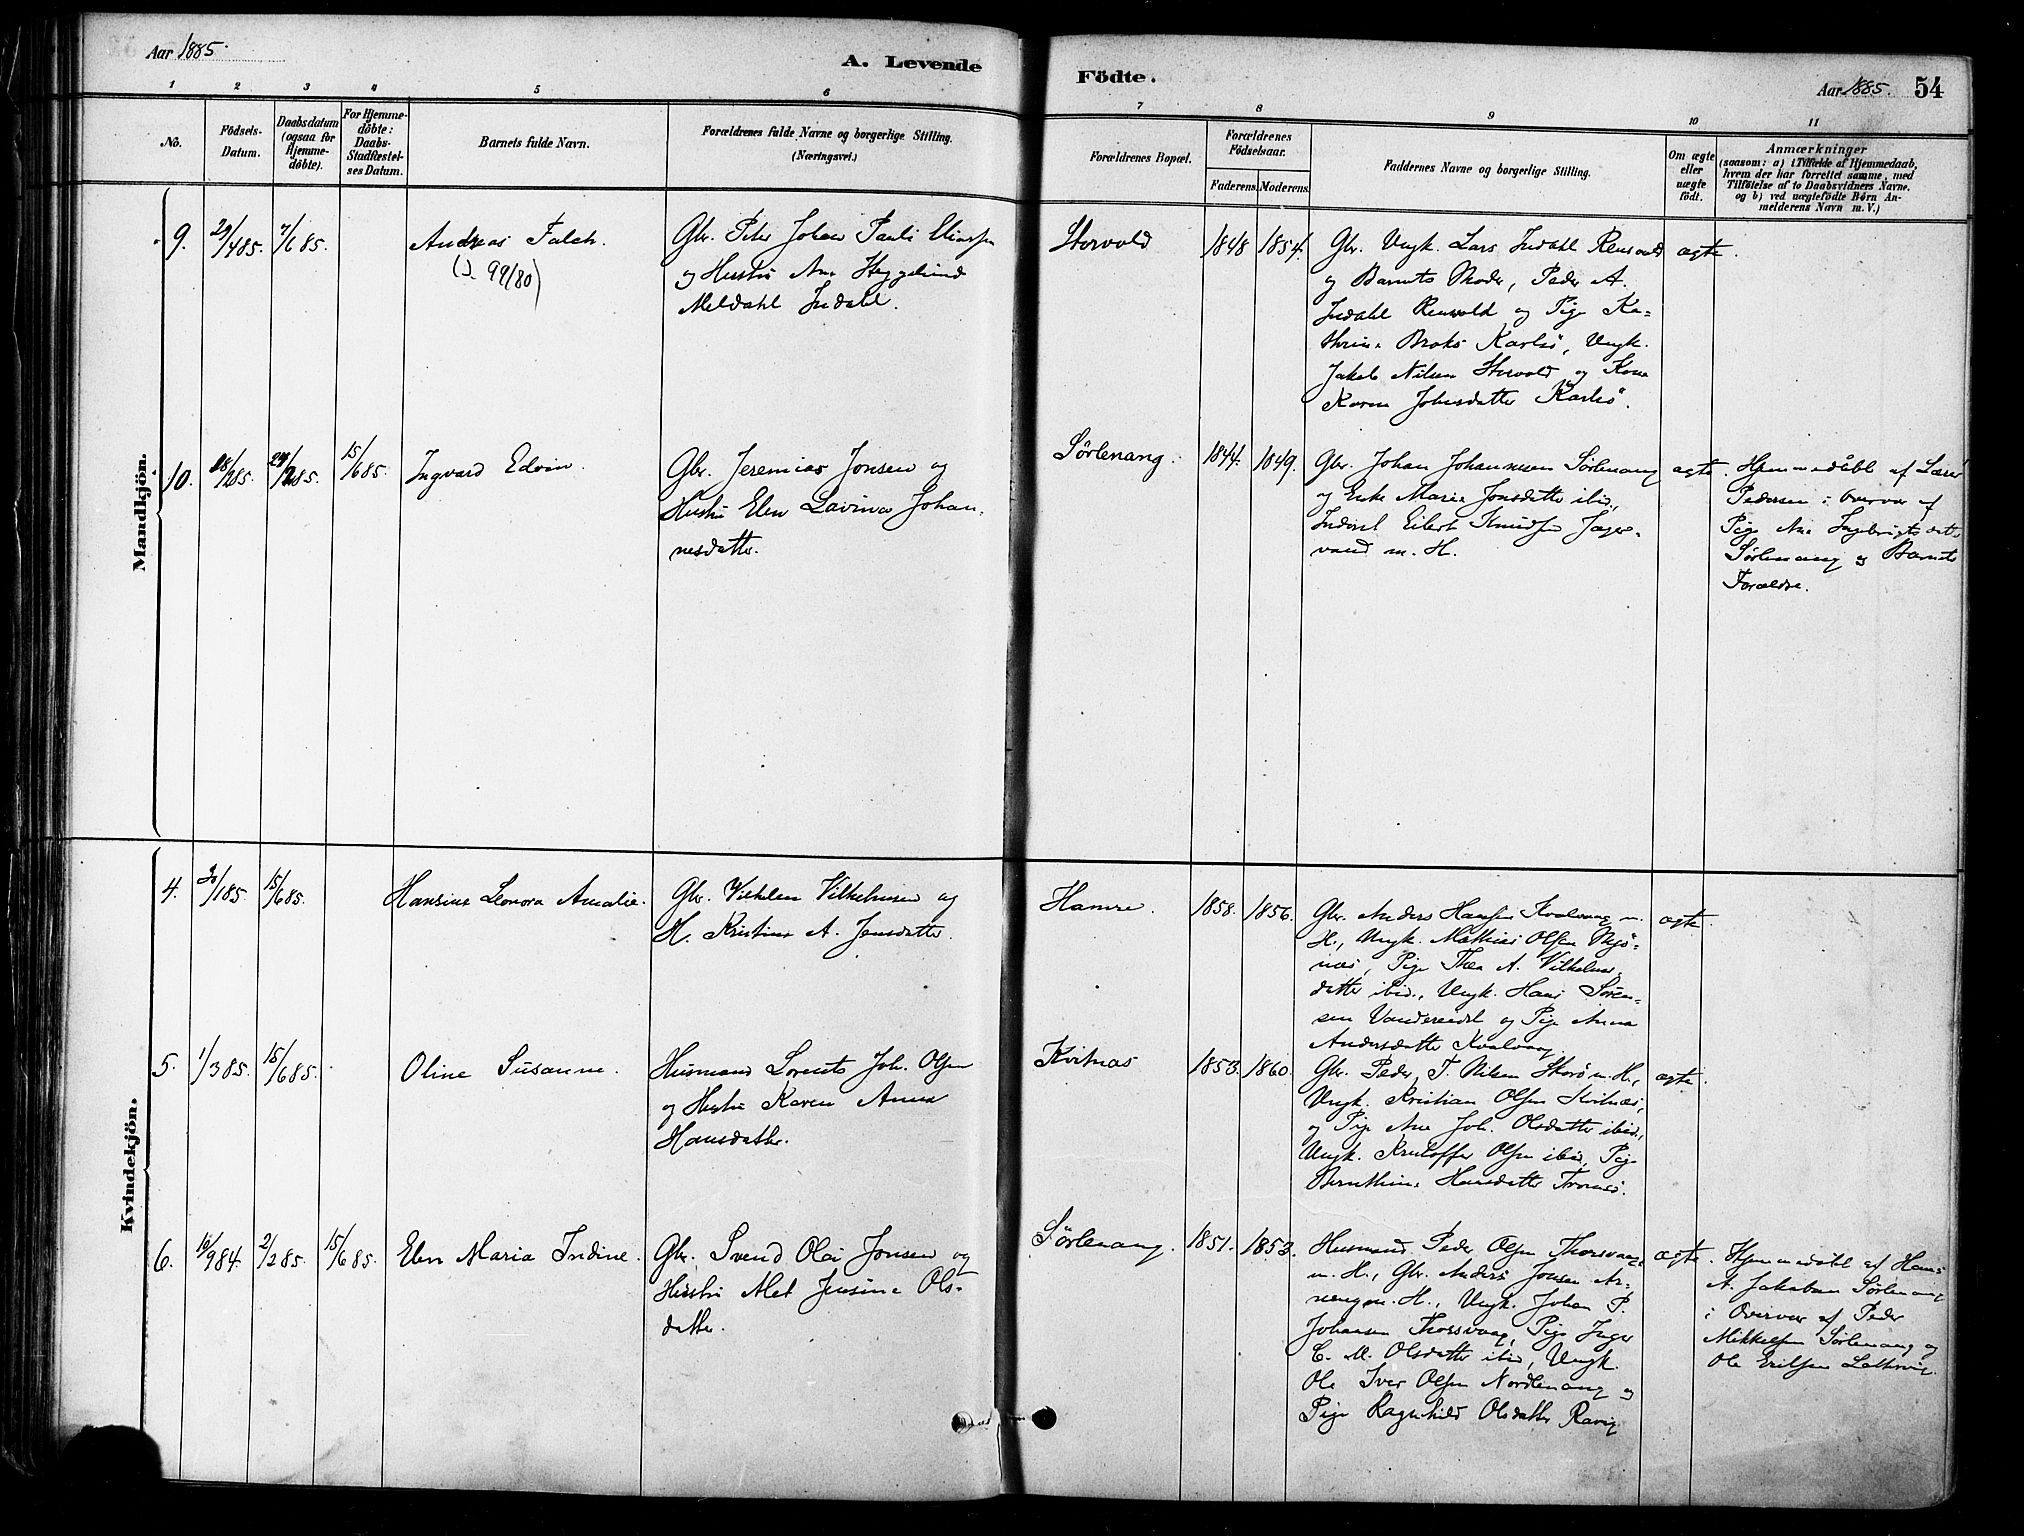 Aar 1885.
A. Levende
Födte.
Aar 1885.
54
1 2 3 4 5 6 7 8 9 10 11
No.
Födsels-
Datum.
Daabsdatum
(ogsaa for
Hjemme-
döbte).
For Hjemme-
döbte:
Daabs-
Stadfæstel-
ses Datum.
Barnets fulde Navn.
Forældrenes fulde Navne og borgerlige Stilling.
(Næringsvei.)
Forældrenes Bopæl.
Forældrenes
Födselsaar.
Faderens. Moderens.
Faddernes Navne og borgerlige Stilling.
Om ægte
eller
uægte
födt.
Anmærkninger
(saasom: a) i Tilfælde af Hjemmedaab,
hvem der har forrettet samme, med
Tilföielse af to Daabsvidners Navne.
og b) ved uægtefödte Börn An-
melderens Navn m. V.)
Mandkjön.
9. 29/485. 7/685.
Andreas Falch.
(J. 99/80)
Gbr. Peter Johan Pauli
og Hustru Ane Heggelund
Meldahl Indahl.
Storvold
1848 1854.
Gbr. Ungk. Lars Indahl Renvold
og Barnets Moder, Peder A.
Indahl Renvold og Pige Ka-
thrine Broks Karlsö, Ungk.
Jakob Nilsen Storvold og Kone
Karen Johnsdatter Karlsö.
ægte.
10. 18/285. 24/285. 15/685.
Ingvard Edvin.
Gbr. Jeremias Jonsen og
Hustru Elen Lavina Johan-
nesdatter.
Sörlenang.
1844. 1849.
Gbr. Johan Johannesen Sörlenang
og Enke Maria Jonsdatter ibid,
Inderst Eilert Knudsen Jæger-
vand m. H.
ægte.
Hjemmedöbt af Lærer
Pedersen i Overvær af
Pige Ane Ingebrigtsdatter
Sörlenang og Barnets
Forældre.
Kvindekjön.
4. 30/185. 15/685.
Hansine Leonora Amalie.
Gbr. Vilhelm Vilhelmsen og
H. Kristine A. Jensdatter.
Hamre.
1858. 1856.
Gbr. Anders Hansen Kvalvaag m.
H., Ungk. Mathias Olsen
Pige Thea A. Vilhelms-
datter ibid., Ungk. Hans Sören-
sen Vandereidet og Pige Anna
Andersdatter Kvalvaag.
ægte.
5. 1/385. 15/685.
Oline Susanne.
Husmand Lorents Joh. Olsen
og Hustru Karen Anna
Hansdatter.
Kvitnæs
1853. 1860.
Gbr. Peder T. Nilsen Skorö m. H.,
Ungk. Kristian Olsen Kvitnæs,
og Pige Ane Joh. Olsdatter ibid.,
Ungk. Kristoffer Olsen ibid, Pige
Bernthine Hansdatter Tromsö.
ægte.
6. 16/984. 2/285. 15/685.
Elen Maria Indine.
Gbr. Svend Olai Jonsen og
Hustru Alet Jensine Ols-
datter.
Sörlenang.
1851. 1853.
Husmand Peder Olsen Thorsvaag
m. H., Gbr. Anders Jonsen Ar-
nengen. H., Ungk. Johan P.
Johansen Thorsvaag, Pige Inger
C. M. Olsdatter ibid, Ungk.
Ole Iver Olsen Nordlenang og
Pige Ragnhild Olsdatter
ægte.
Hjemmedöbt af Hans
A. Jakobsen Sörlenang
i Overvær af Peder
Mikkelsen Sörlenang og
Ole Eriksen